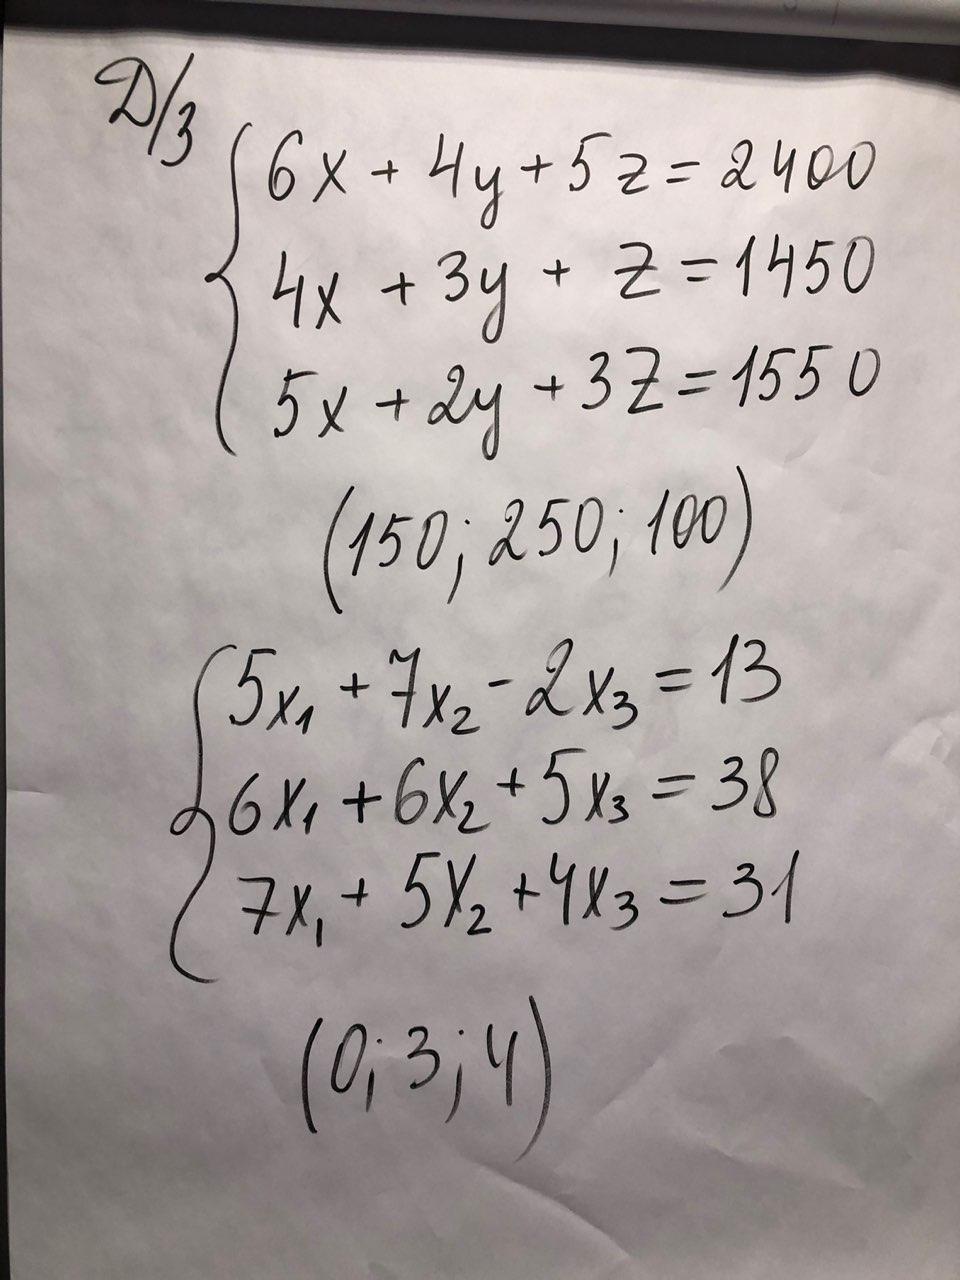 Д/з
6x + 4y + 5z = 2400
4x + 3y + z = 1450
5x + 2y + 3z = 1550
(150; 250; 100)
5x₁ + 7x₂ - 2x₃ = 13
6x₁ + 6x₂ + 5x₃ = 38
7x₁ + 5x₂ + 4x₃ = 31
(0; 3; 4)